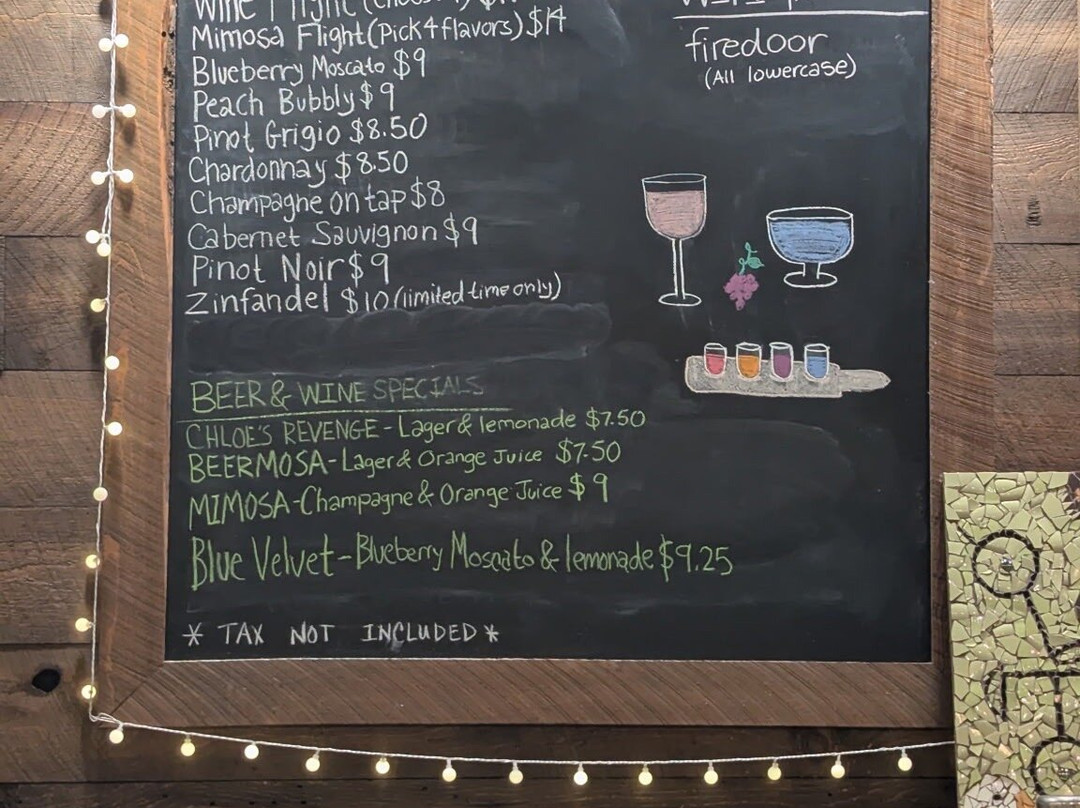 Mimosa Flight (Pick 4 flavors) $14
Blueberry Moscato $9
Peach Bubbly $9
Pinot Grigio $8.50
Chardonnay $8.50
Champagne on tap $8
Cabernet Sauvignon $9
Pinot Noir $9
Zinfandel $10 (limited time only)
BEER & WINE SPECIALS
CHLOE'S REVENGE - Lager & lemonade $7.50
BEERMOSA - Lager & Orange Juice $7.50
MIMOSA - Champagne & Orange Juice $9
Blue Velvet - Blueberry Moscato & lemonade $9.25
* TAX NOT INCLUDED *
firedoor
(All lowercase)